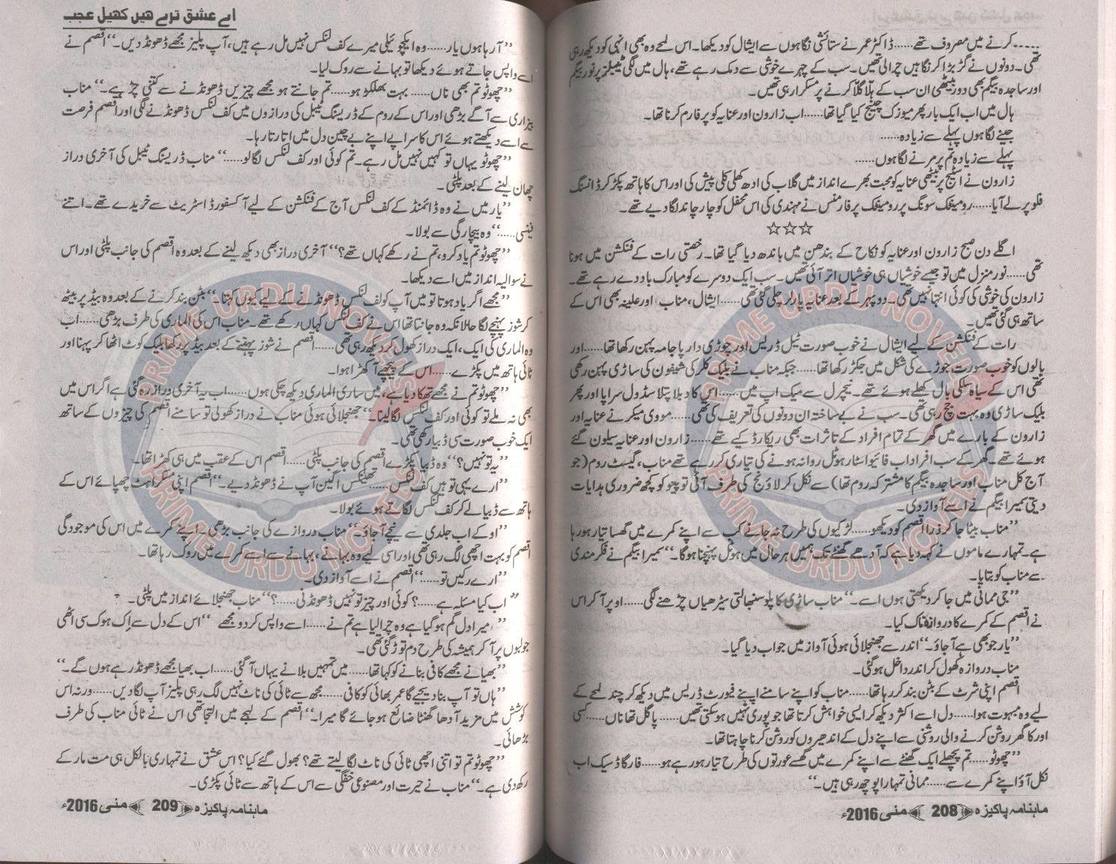 ۔۔۔۔ کرنے میں مصروف تھے...... ڈاکٹر عمر نے ستائشی نگاہوں سے ایشال کو دیکھا۔ اس لمحے وہ بھی انہی کو دیکھ رہی
تھی۔ دونوں نے گڑبڑا کر نگاہیں چرا لی تھیں۔ سب کے چہرے خوشی سے دمک رہے تھے، ہال میں لگی ٹیبلز پر نور بیگم
اور ساجدہ بیگم بھی دور بیٹھی ان سب کے ہلا گلا کرنے پر مسکرا رہی تھیں۔
ہال میں اب ایک بار پھر میوزک چینج کیا گیا تھا...... اب زارون اور عنایہ کو پرفارم کرنا تھا۔
جینے لگا ہوں پہلے سے زیادہ......
پہلے سے زیادہ تم پر مرنے لگا ہوں......
زارون نے اسٹیج پر بیٹھی عنایہ کو محبت بھرے انداز میں گلاب کی ادھ کھلی کلی پیش کی اور اس کا ہاتھ پکڑ کر ڈانسنگ
فلور پر لے آیا...... رومینٹک سونگ پر رومینٹک پرفارمنس نے مہندی کی اس محفل کو چار چاند لگا دیے تھے۔
☆☆☆
اگلے دن صبح زارون اور عنایہ کو نکاح کے بندھن میں باندھ دیا گیا تھا۔ رخصتی رات کے فنکشن میں ہونا
تھی...... نور منزل میں تو جیسے خوشیاں ہی خوشیاں اتر آئی تھیں۔ سب ایک دوسرے کو مبارک باد دے رہے تھے۔
زارون کی خوشی کی کوئی انتہا نہیں تھی۔ دوپہر کے بعد عنایہ پارلر چلی گئی تھی...... ایشال، مناب، اور علینہ بھی اس کے
ساتھ ہی گئی تھیں۔
رات کے فنکشن کے لیے ایشال نے خوب صورت ٹیل ڈریس اور چوڑی دار پاجامہ پہن رکھا تھا...... اور
بالوں کو خوب صورت جوڑے کی شکل میں جکڑ رکھا تھا...... جبکہ مناب نے بلیک کلر کی شیفون کی ساڑی پہن رکھی
تھی اس کے سیاہ سلکی بال کھلے ہوئے تھے۔ نیچرل سے میک اپ میں...... اس کا دبلا پتلا سڈول سراپا اور پھر
بلیک ساڑی وہ بہت جچ رہی تھی۔ سب نے بے ساختہ ان دونوں کی تعریف کی تھی...... مووی میکر نے عنایہ اور
زارون کے بارے میں گھر کے تمام افراد کے تاثرات بھی ریکارڈ کیے تھے...... زارون اور عنایہ سیلون گئے
ہوئے تھے۔ گھر کے سب افراد اب فائیو اسٹار ہوٹل روانہ ہونے کی تیاری کر رہے تھے مناب، گیسٹ روم (جو
آج کل مناب اور ساجدہ بیگم کا مشترکہ روم تھا) سے نکل کر لاؤنج کی طرف آئی تو چو کو کچھ ضروری ہدایات
دیتی سمیرا بیگم نے اسے آواز دی۔
”مناب بیٹا جا کر ذرا اقصم کو دیکھو...... لڑکیوں کی طرح نہ جانے کب سے اپنے کمرے میں گھسا تیار ہو رہا
ہے۔ تمہارے ماموں نے کہہ دیا ہے کہ آدھے گھنٹے تک ہمیں ہر حال میں ہوٹل پہنچنا ہو گا۔“ سمیرا بیگم نے فکر مندی
سے مناب کو بتایا۔
”جی ممانی میں جا کر دیکھتی ہوں اسے۔“ مناب ساڑی کا پلو سنبھالتی سیڑھیاں چڑھنے لگی...... اوپر آ کر اس
نے اقصم کے کمرے کا دروازہ ناک کیا۔
”یار جو بھی ہے آجاؤ۔“ اندر سے جھنجلائی ہوئی آواز میں جواب دیا گیا۔
مناب دروازہ کھول کر اندر داخل ہو گئی۔
اقصم اپنی شرٹ کے بٹن بند کر رہا تھا...... مناب کو اپنے سامنے اپنے فیورٹ ڈریس میں دیکھ کر چند لمحے کے
لیے وہ مبہوت ہوا...... دل اسے اکثر دیکھ کر ایسی خواہش کرتا تھا جو پوری نہیں ہو سکتی تھیں...... پاگل تھا ناں...... کسی
اور کا گھر روشن کرنے والی روشنی سے اپنے دل کے اندھیروں کو روشن کرنا چاہتا تھا۔
”چھوٹو...... تم پچھلے ایک گھنٹے سے اپنے کمرے میں گھسے عورتوں کی طرح تیار ہو رہے ہو...... فار گاڈ سیک اب
نکل آؤ اپنے کمرے سے...... ممانی تمہارا پوچھ رہی ہیں۔“
ماہنامہ پاکیزہ 208 مئی 2016ء
اے عشق ترے ہیں کھیل عجب
”آ رہا ہوں یار...... وہ ایکچوئیلی میرے کف لنکس نہیں مل رہے ہیں، آپ پلیز مجھے ڈھونڈ دیں۔“ اقصم نے
اسے واپس جاتے ہوئے دیکھا تو بہانے سے روک لیا۔
”چھوٹو تم بھی ناں...... بہت بھلکڑ ہو...... تم جانتے ہو مجھے چیزیں ڈھونڈنے سے کتنی چڑ ہے۔“ مناب
بیزاری سے آگے بڑھی اور اس کے روم کے ڈریسنگ ٹیبل کی درازوں میں کف لنکس ڈھونڈنے لگی اور اقصم فرصت
سے اسے دیکھتے ہوئے اس کا سراپے اپنے بے چین دل میں اتارتا رہا۔
”چھوٹو یہاں تو کہیں نہیں مل رہے۔ تم کوئی اور کف لنکس لگا لو......“ مناب ڈریسنگ ٹیبل کی آخری دراز
چھان لینے کے بعد پلٹی۔
”یار میں نے وہ ڈائمنڈ کے کف لنکس آج کے فنکشن کے لیے آکسفورڈ اسٹریٹ سے خریدے تھے۔ اتنے
فینسی......“ وہ بیچارگی سے بولا۔
”چھوٹو تم یاد کرو، تم نے رکھے کہاں تھے؟“ آخری دراز بھی دیکھ لینے کے بعد وہ اقصم کی جانب پلٹی اور اس
نے سوالیہ انداز میں اسے دیکھا۔
”مجھے اگر یاد ہوتا تو میں آپ کو کف لنکس ڈھونڈنے کے لیے کیوں کہتا۔“ بٹن بند کرنے کے بعد وہ بیڈ پر بیٹھ
کر شوز پہننے لگا حالانکہ وہ جانتا تھا اس نے کف لنکس کہاں رکھے تھے۔ مناب اس کی الماری کی طرف بڑھی...... اب
وہ الماری کی ایک، ایک دراز کھول کر دیکھ رہی تھی...... اقصم نے شوز پہننے کے بعد بیڈ پر رکھا بلیک کوٹ اٹھا کر پہنا اور
ٹائی ہاتھ میں پکڑے...... اس کے پیچھے آ کھڑا ہوا۔
”چھوٹو تم نے مجھے تھکا دیا ہے، میں ساری الماری دیکھ چکی ہوں...... اب یہ آخری دراز رہ گئی ہے اگر اس میں
بھی نہ ملے تو کوئی اور کف لنکس لگا لینا۔“ جھنجلائی ہوئی مناب نے دراز کھولی تو سامنے اقصم کی چیزوں کے ساتھ
ایک خوب صورت سی ڈبیا رکھی تھی۔
”یہ تو نہیں؟“ وہ ڈبیا پکڑے اقصم کی جانب پلٹی...... اقصم اس کے عقب میں ہی کھڑا تھا۔
”ارے یہی تو ہیں کف لنکس...... تھینکس اگین آپ نے ڈھونڈ دیے۔“ اقصم اپنی مسکراہٹ چھپائے اس کے
ہاتھ سے ڈبیا لے کر کف لنکس لگاتے ہوئے بولا۔
”اوکے اب جلدی سے نیچے آجاؤ۔“ مناب دروازے کی جانب بڑھی۔ اپنے کمرے میں اس کی موجودگی
اقصم کو بہت اچھی لگ رہی تھی اور اسی لیے وہ بہانے، بہانے سے اسے کمرے میں روک رہا تھا۔
”ارے رکیں تو......“ اقصم نے اسے آواز دی۔
”اب کیا مسئلہ ہے......؟ کوئی اور چیز تو نہیں ڈھونڈنی......؟“ مناب جھنجلائے انداز میں پلٹی۔
”میرا دل گم ہو گیا ہے وہ چرا لیا ہے تم نے...... اسے واپس کر دو مجھے“ اس کے دل سے اِک ہوک سی اٹھی
جو لبوں پر آ کر ہمیشہ کی طرح دم توڑ گئی تھی۔
”بھیا نے مجھے کافی بنانے کو کہا تھا...... میں تمہیں بلانے یہاں آ گئی...... اب بھیا مجھے ڈھونڈ رہے ہوں گے۔“
”ہاں تو آپ بنا دیجیے گا عمر بھائی کو کافی...... مجھ سے ٹائی کی ناٹ نہیں لگ رہی پلیز آپ لگا دیں...... ورنہ اس
کوشش میں مزید آدھا گھنٹا ضائع ہو جائے گا میرا۔“ اقصم کے لہجے میں التجا تھی اس نے ٹائی مناب کی طرف
بڑھائی۔
”چھوٹو تم تو اتنی اچھی ٹائی کی ناٹ لگا لیتے تھے؟ بھول گئے کیا؟ اس عشق نے تمہاری بالکل ہی مت مار کے
رکھ دی ہے۔“ مناب نے حیرت اور مصنوعی خفگی سے اس کے ہاتھ سے ٹائی پکڑی۔
ماہنامہ پاکیزہ 209 مئی 2016ء
PRIME URDU NOVELS
PRIME URDU NOVELS